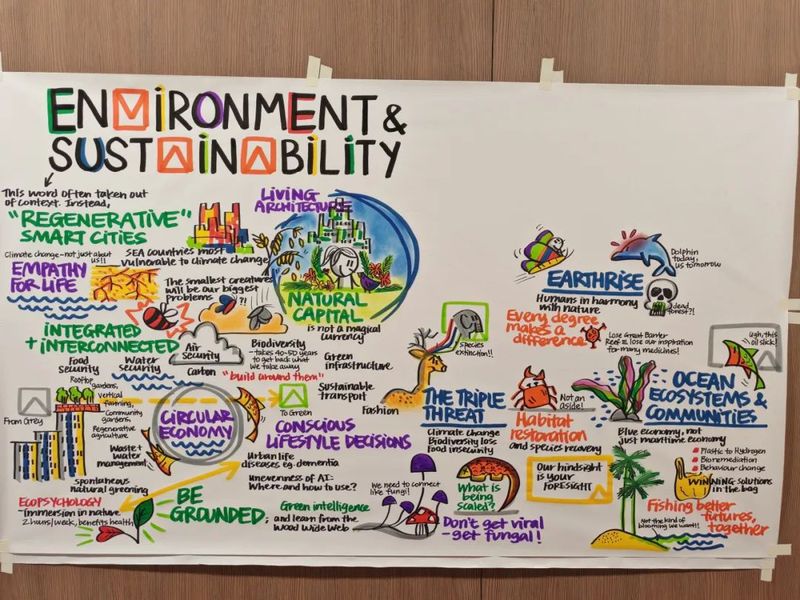 ENVIRONMENT &
SUSTAINABILITY
This word often taken out
of context. Instead,
"REGENERATIVE"
SMART CITIES
Climate change - not just about
us!!
EMPATHY
FOR LIFE
SEA countries most
vulnerable to climate change
The smallest creatures
will be our biggest
problems
?!!
LIVING
ARCHITECTURE
NATURAL
CAPITAL
is not a magical
currency
INTEGRATED
+ INTERCONNECTED
Food
security
Water
security
Air
security
Carbon
Biodiversity
- takes 40-50 years
to get back what
we take away
"build around them"
Green
infrastructure
Sustainable
transport
Fashion
From Grey
Rooftop
gardens,
vertical
farming,
Community
gardens,
Regenerative
agriculture
Waste +
water
management
Spontaneous
natural greening
CIRCULAR
ECONOMY
To Green
CONSCIOUS
LIFESTYLE DECISIONS
Urban life
diseases eg. dementia
Unevenness of AI:
Where and how to use?
ECOPSYCHOLOGY
- Immersion in nature
2 hours/week, benefits health
BE
GROUNDED;
Green intelligence
and learn from the
Wood Wide Web
We need to connect
like fungi!
What is
being
scaled?
Don't get viral
- get fungal!
species
extinction!!
THE TRIPLE
THREAT
Climate change
Biodiversity loss
Food insecurity
EARTHRISE
Humans in harmony
with nature
Dolphin
today,
us tomorrow
dead
forest?!
Every degree
makes a
difference
Lose Great Barrier
Reef = lose our inspiration
for many medicines!
Not an
aside!
Habitat
restoration
and species recovery
Our hindsight
is your
FORESIGHT
Ugh, this
oil slick!
OCEAN
ECOSYSTEMS &
COMMUNITIES
Blue economy, not
just maritime economy
Plastic to Hydrogen
Bioremediation
Behaviour change
WINNING SOLUTIONS
in the bag
Fishing better
futures,
together
Not the kind of
blooming we want!!